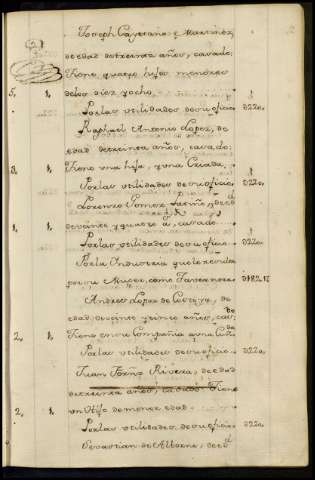 Joseph Cayetano Martinez
de edad de treinta años, casado,
Tiene quatro hijos menores
de los diez y ocho,
5, 1,
Por las utilidades de su oficio 0220,
Raphael Antonio Lopez, de
edad de treinta años, casado:
3, 1, Tiene una hija, y una Criada,
Por las utilidades de su oficio, 0220,
Lorenzo Gomez , de ed.d
1, 1, de veinte y quatro a.s, casado
Por las utilidades de su oficio 0220,
Por la Industria que le
por su Muger, como Tavernera
Andres Lopez de , de
edad de veinte y cinco años, cas.do
2, 1, Tiene en su Compañia una
Por las utilidades de su oficio 0220,
Juan Rivera, de edad
de treinta años, casado: Tiene
2, 1, un Hijo de menor edad
Por las utilidades de su oficio 0220,
Sevastian de , de ed.d